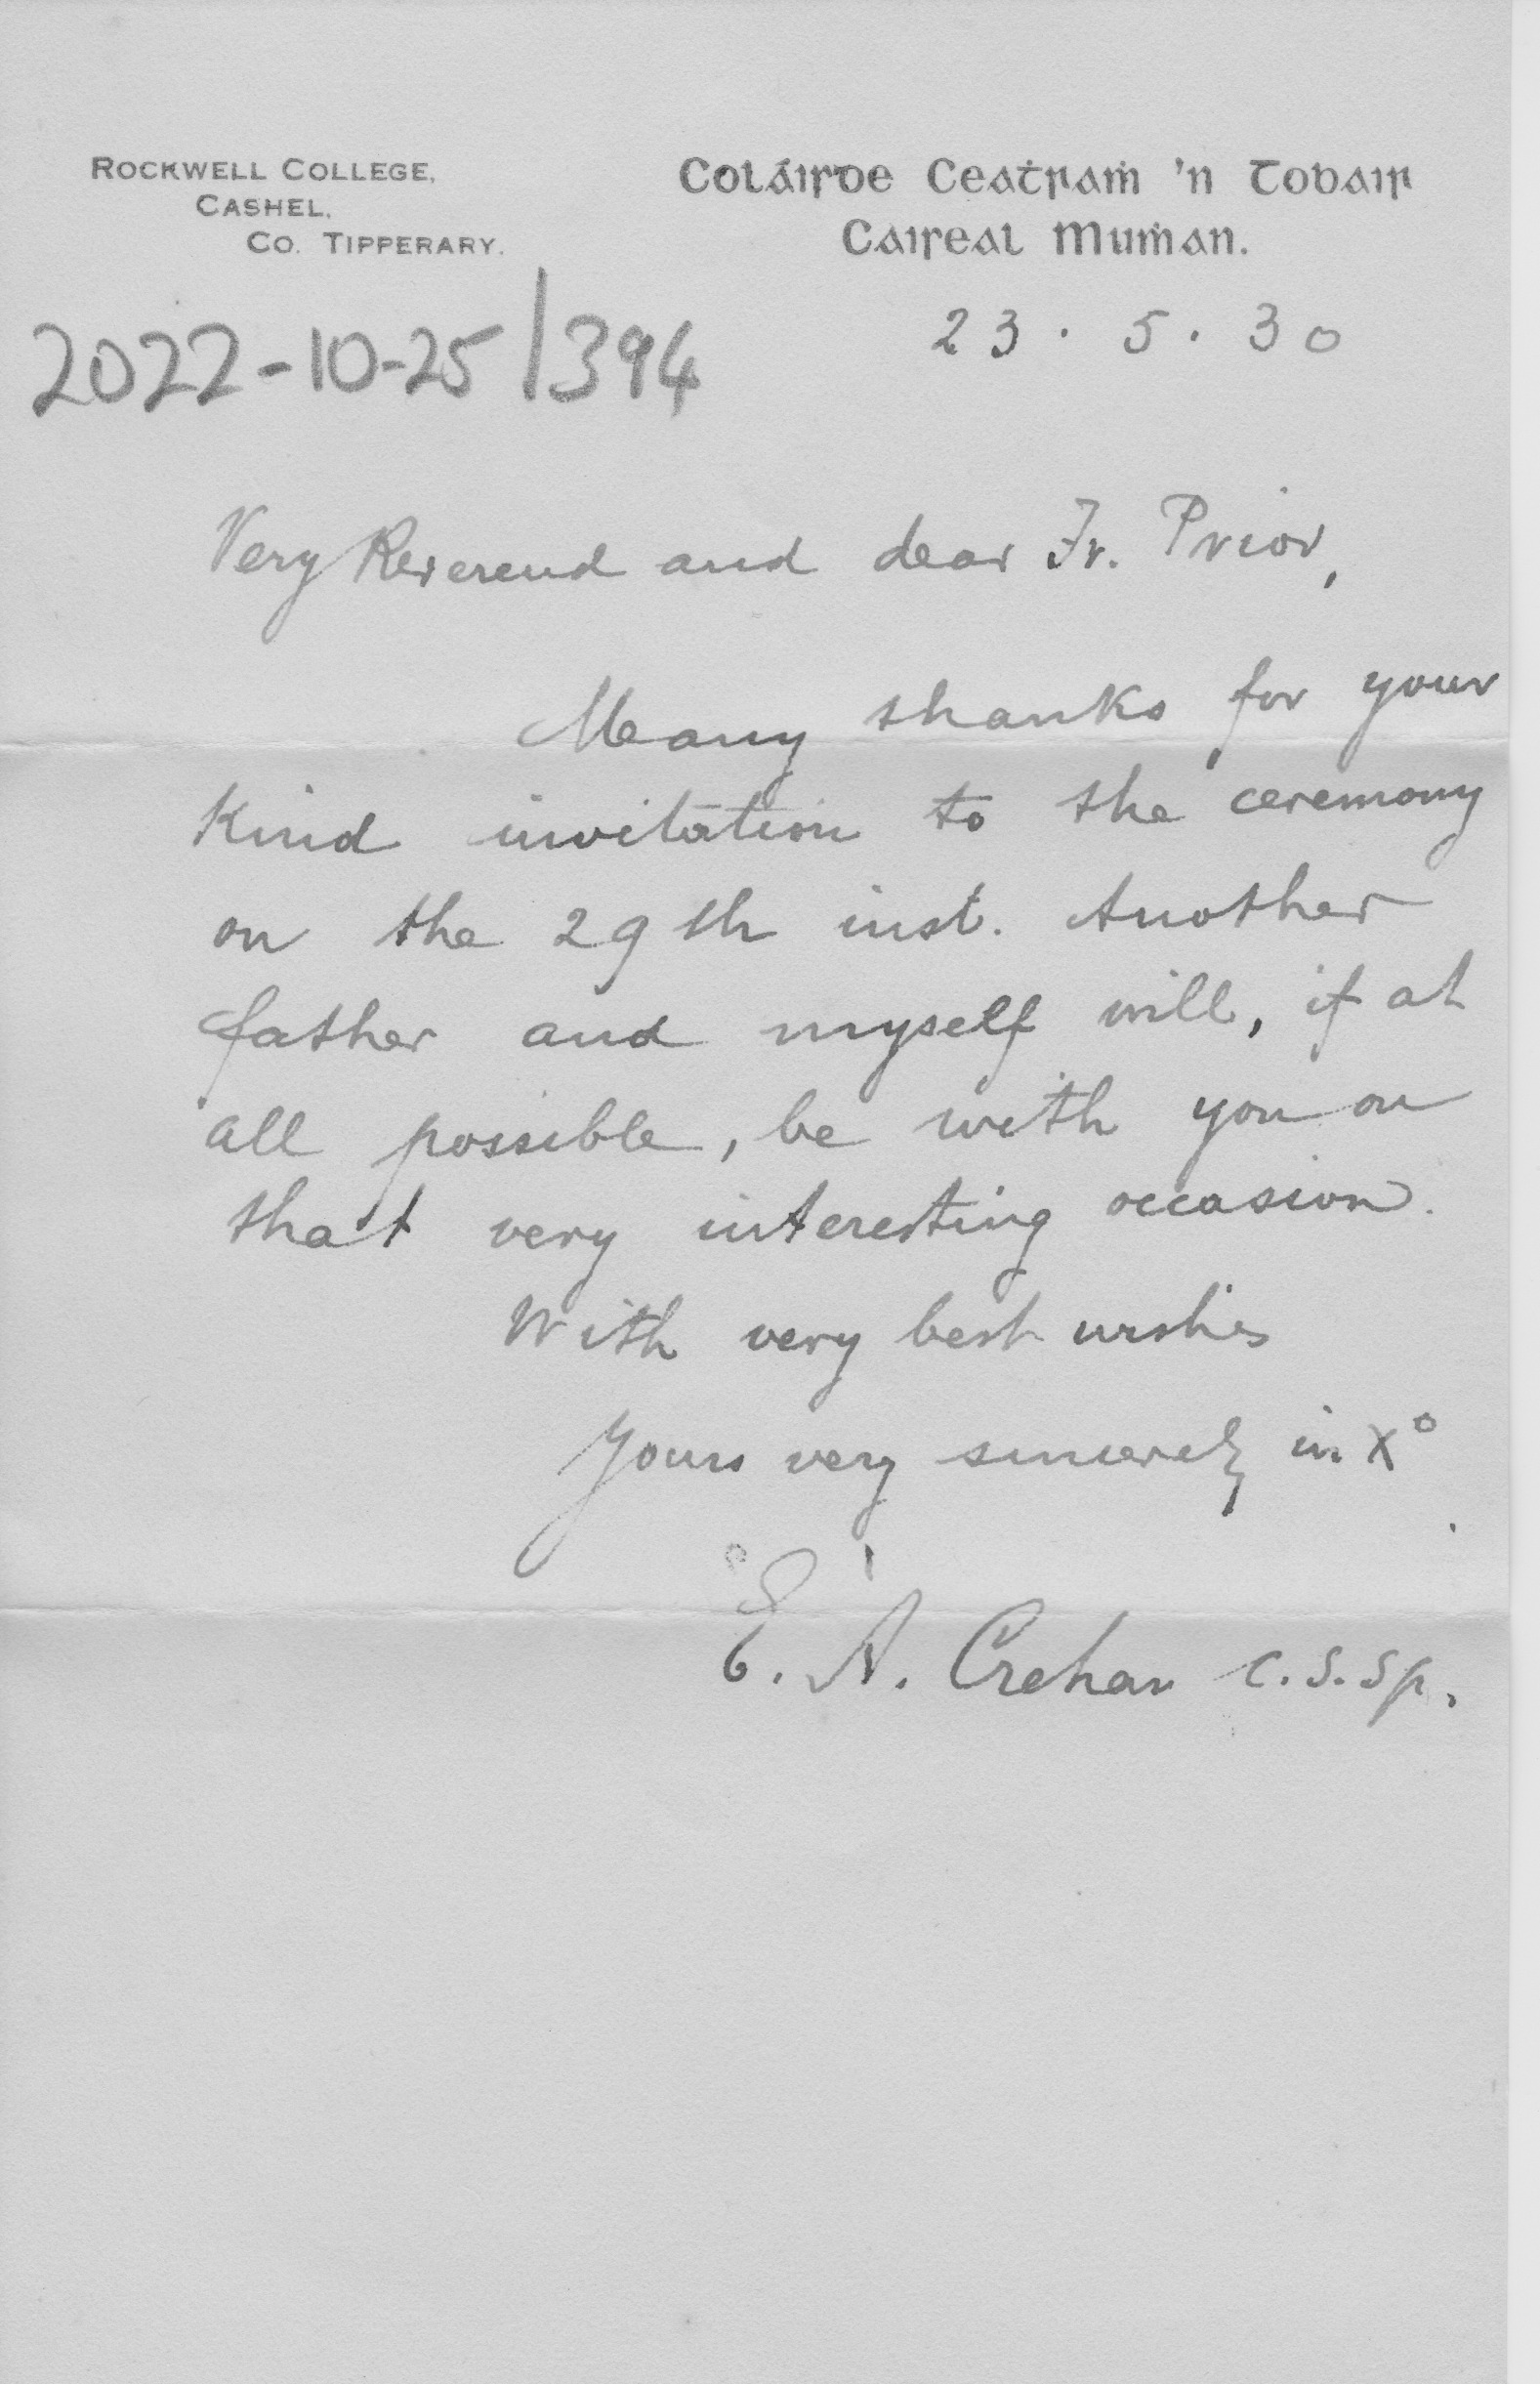 ROCKWELL COLLEGE,
CASHEL,
CO. TIPPERARY.
Coláisde Ceaṫraṁ 'n Tobair
Caiseal Muṁan.
23 . 5 . 30
2022-10-25/394
Very Reverend and dear Fr. Prior,
Many thanks for your
kind invitation to the ceremony
on the 29th inst. Another
father and myself will, if at
all possible, be with you on
that very interesting occasion.
With very best wishes
Yours very sincerely in Xº
E. A. Crehan C.S.Sp.